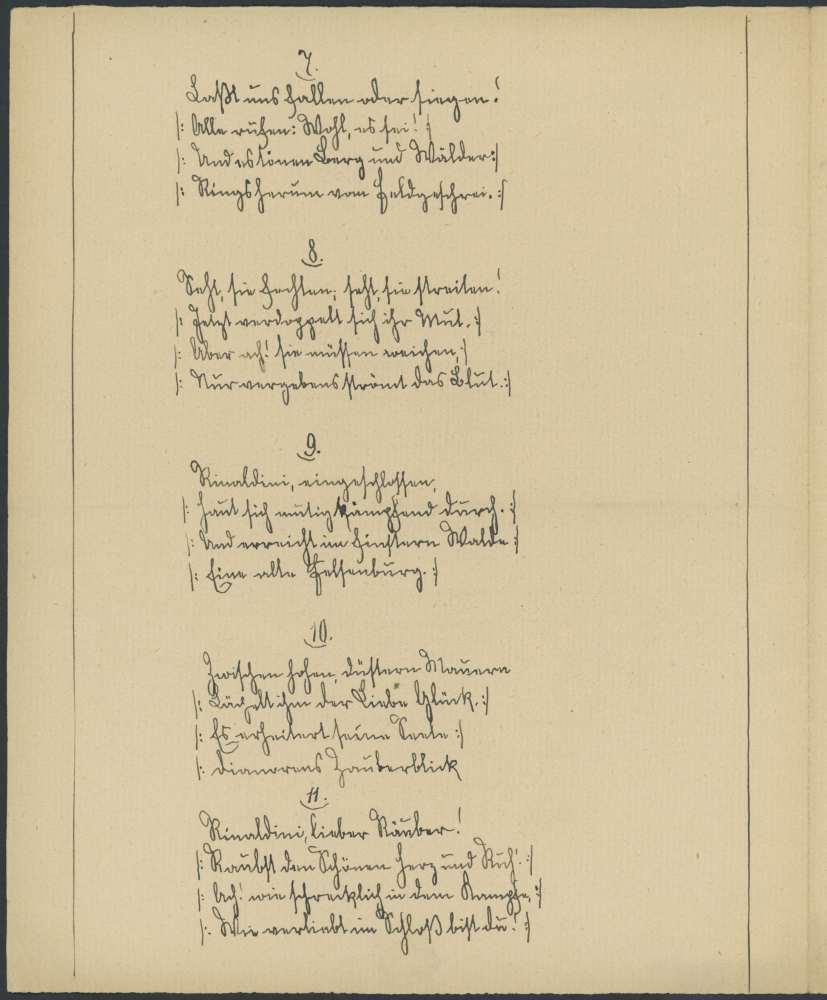 7.
Laßt uns fallen oder siegen!
|: Alle rufen: Wohl, es sei! :|
|: Und es tönen Berg und Wälder :|
|: Ringsherum vom Feldgeschrei. :|
8.
Seht, sie fechten; seht, sie streiten!
|: Jetzt verdoppelt sich ihr Mut. :|
|: Aber ach! sie müssen weichen, :|
|: Nur vergebens strömt das Blut. :|
9.
Rinaldini, eingeschlossen,
|: Haut sich mutig kämpfend durch. :|
|: Und erreicht im finstern Walde :|
|: Eine alte Felsenburg. :|
10.
Zwischen hohen, düstern Mauern
|: Lächelt ihm der Liebe Glück. :|
|: Es erheitert seine Seele :|
|: Dianorens Zauberblick
11.
Rinaldini, lieber Räuber!
|: Raubst den Schönen Herz und Ruh'. :|
|: Ach! wie schrecklich in dem Kampfe, :|
|: Wie verliebt im Schloß bist du! :|